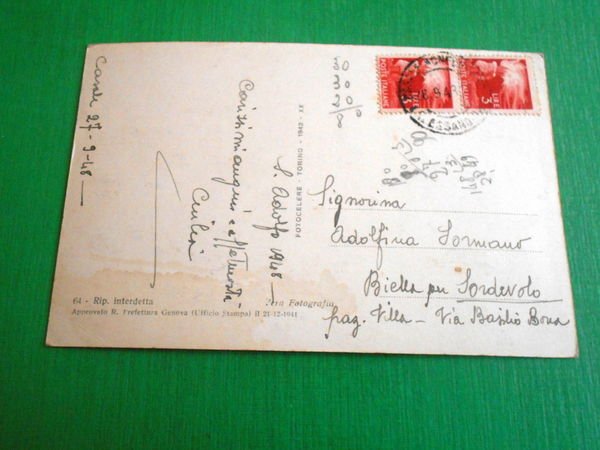 Casale 27-9-48
S. Adolfo 1948
Carissimi auguri e affettuosità
FOTOCELERE - TORINO - 1942 - XX
POSTE ITALIANE
LIRE 3
POSTE ITALIANE
LIRE 3
Signorina
Adolfina Sormano
Biella per Sordevolo
fraz. Villa - Via Basilio Bona
64 - Rip. interdetta
Vera Fotografia
Approvato R. Prefettura Genova (Ufficio Stampa) il 21-12-1941